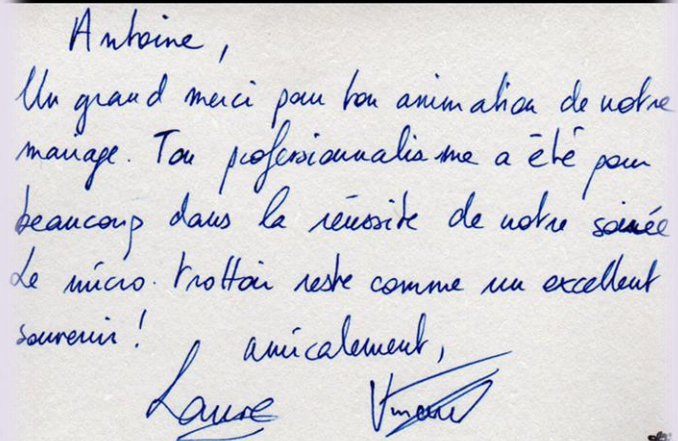 Antoine,
Un grand merci pour ton animation de notre
mariage. Ton professionnalisme a été pour
beaucoup dans la réussite de notre soirée
Le micro-trottoir reste comme un excellent
souvenir !
amicalement,
Laure Vincent